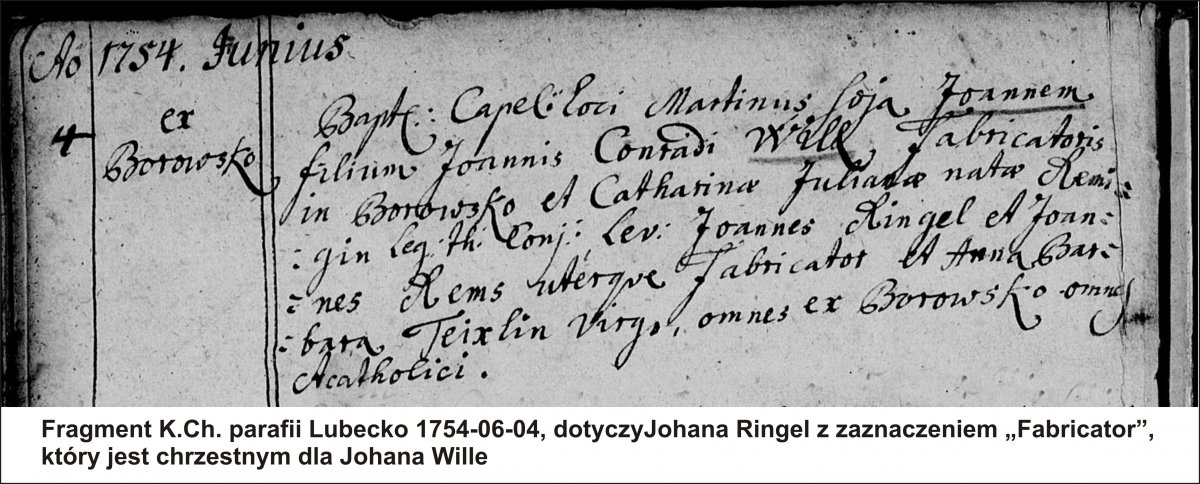 Ao 1754. Junius
4 ex Borowsko
Bapt: Capel: Loci Martinus Soja Joannem
filium Joannis Conradi Will, Fabricatoris
in Borowsko et Catharinæ Julianæ natæ Remi=
=gin leg: th: Conj: Lev: Joannes Ringel et Joan=
=nes Rems uterque Fabricator et Anna Bar=
=bara Teixlin Virgo, omnes ex Borowsko omnes
Acatholici.
Fragment K.Ch. parafii Lubecko 1754-06-04, dotyczyJohana Ringel z zaznaczeniem „Fabricator”,
który jest chrzestnym dla Johana Wille